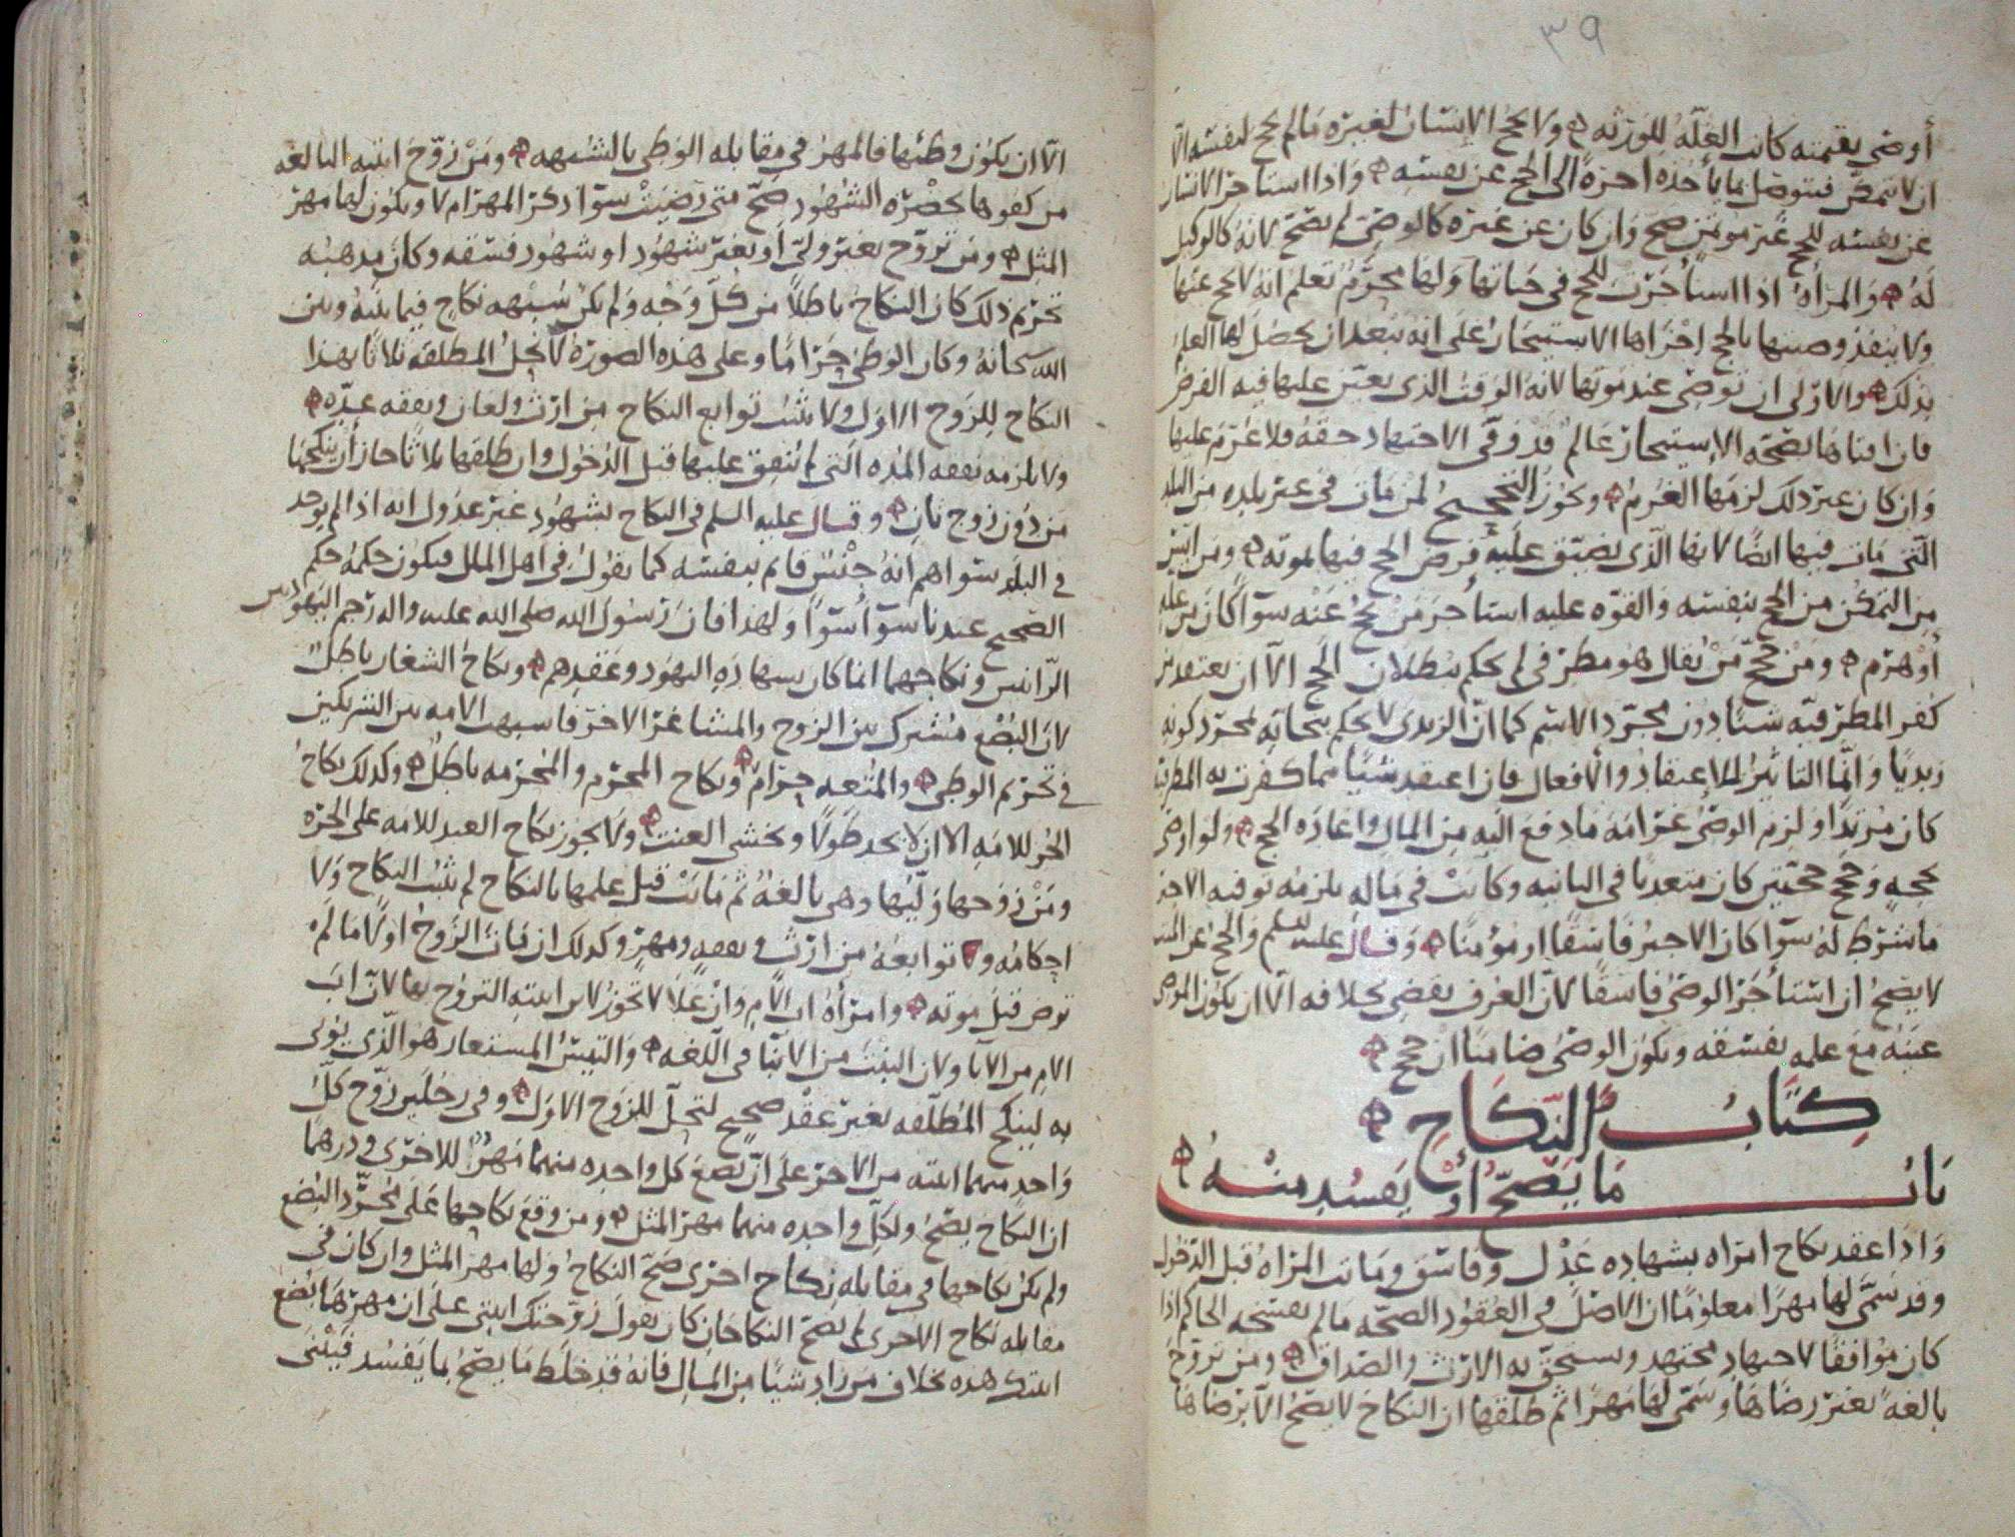 ٣٩
أوصى بقيمته كانت الغلة للورثة ولا يحج الانسان لغيره مالم يحج لنفسه الا
ان لا يتمكن فيتوصل بما يأخذه اجرة الى الحج عن نفسه واذا استاجر الانسان
عن نفسه للحج غير مومن صح وان كان عن غيره كالوصي لم يصح لانه كالوكيل
له والمرأة اذا استأجرت للحج في حياتها ولها محرم تعلم انه لا يحج عنها
ولا ينفذ وصيتها بالحج اجزاها الاستيجار على انه بعد ان يحصل لها العلم
بذلك والاولى ان توصي عند موتها لانه الوقت الذي يعين عليها فيه الفرض
فان افتاها بصحة الاستيجار عالم قد وفى الاجتهاد حقه فلا غرم عليها
وان كان غير ذلك لزمها الغرم ويجوز التحجيج لمن مات في غير بلده من البلد
التي مات فيها ايضا لانها الذي يضيق عليه فرض الحج فيها لموته ومن ايس
من التمكن من الحج بنفسه والقوه عليه استأجر من يحج عنه سوآ كان من عله
أو هرم ومن حج من يقال هو مطرفي لم يحكم ببطلان الحج الا ان يعتقد من
كفر المطرفيه شيئا دون مجرد الاسم كما ان الزيدي لا يحكم بنجاته لمجرد كونه
زيديا وانما التاثير للاعتقاد والأفعال فان اعتقد شيئا مما كفرت به المطرفية
كان مرتدا ولزم الوصي غرامة ما دفع اليه من المال واعادة الحج ولو اوصى
بحجه وحج حجتين كان متعديا في الثانيه وكانت في ماله يلزمه توفيه الاجير
ما شرط له سوآ كان الاجير فاسقا او مؤمنا وقال عليه السلم والحج عن الميت
لا يصح ان استأجر الوصي فاسقا لان العرف يقضي بخلافه الا ان يكون الموصي
عينه مع علمه بفسقه ويكون الوصي ضامنا ان حج
كتاب النكاح
باب ما يصح أو يفسد منه
واذا عقد نكاح امراه بشهاده عدل وفاسق وماتت المراة قبل الدخول
وقد سمى لها مهرا معلوما ان الاصل في العقود الصحه مالم يفسخه الحاكم اذا
كان موافقا لاجتهاد مجتهد ويستحق به الارث والصداق ومن تزوج
بالغة بغير رضاها وسمى لها مهرا ثم طلقها ان النكاح لا يصح الا برضاها
الا ان يكون وطئها فالمهر في مقابله الوطي بالشبهه ومن زوج ابنته البالغه
من كفوها بحضره الشهود صح متى رضيت سوآ ذكر المهر ام لا ويكون لها مهر
المثل ومن تزوج بغير ولي أو بغير شهود او شهود فسقه وكان مذهبه
تحريم ذلك كان النكاح باطلا من كل وجه ولم يكن شبهه نكاح فيما بينه وبين
الله سبحانه وكان الوطئ حراما وعلى هذه الصورة لا تحل المطلقه ثلاثا بهذا
النكاح للزوج الاول ولا يثبت توابع النكاح من ارث ولعان ونفقه عده
ولا يلزمه نفقه المده التي لم ينفق عليها قبل الدخول وان طلقها ثلاثا جاز أن ينكحها
من دون زوج ثان وقال عليه السلم في النكاح بشهود غير عدول انه اذا لم يوجد
في البلد سواهم انه جنس قائم بنفسه كما يقول في اهل الملل فيكون حكمه حكم
الصحيح عندنا سوآ سوآ ولهذا فان رسول الله صلى الله عليه واله رجم اليهوديين
الزانيين ونكاحهما انما كان بشهادة اليهود وعقدهم ونكاح الشغار باطل
لان البضع مشترك بين الزوج والمشاغر الاخر فاشبهت الامه بين الشريكين
في تحريم الوطي والمتعه حرام ونكاح المحرم والمحرمه باطل وكذلك نكاح
الحر للامه الا ان لا يجد طولا ويخشى العنت ولا يجوز نكاح العبد للامه على الحرة
ومن زوجها وليها وهي بالغة ثم ماتت قبل علمها بالنكاح لم يثبت النكاح ولا
احكامه ولا توابعه من ارث ونفقه ومهر وكذلك ان مات الزوج اولا ما لم
ترض قبل موته وامرأة اب الام وان علا لا تجوز لابن ابنته التزوج بها لان اب
الام من الآبا ولان البنت من الابنا في اللغه والتيس المستعار هو الذي يؤتى
به لينكح المطلقه بغير عقد صحيح لتحل للزوج الاول وفي رجلين زوج كل
واحد منهما ابنته من الاخر على ان بضع كل واحده منهما مهر للاخرى ودرهما
ان النكاح يصح ولكل واحده منهما مهر المثل ومن وقع نكاحها على مجرد البضع
ولم يكن نكاحها في مقابله نكاح اخرى صح النكاح ولها مهر المثل وان كان في
مقابله نكاح الاخرى لم يصح النكاحان كان يقول زوجتك ابنتي على ان مهرها بضع
ابنتك هذه بخلاف من زاد شيئا من المال فانه قد خلط ما يصح بما يفسد فيبنى